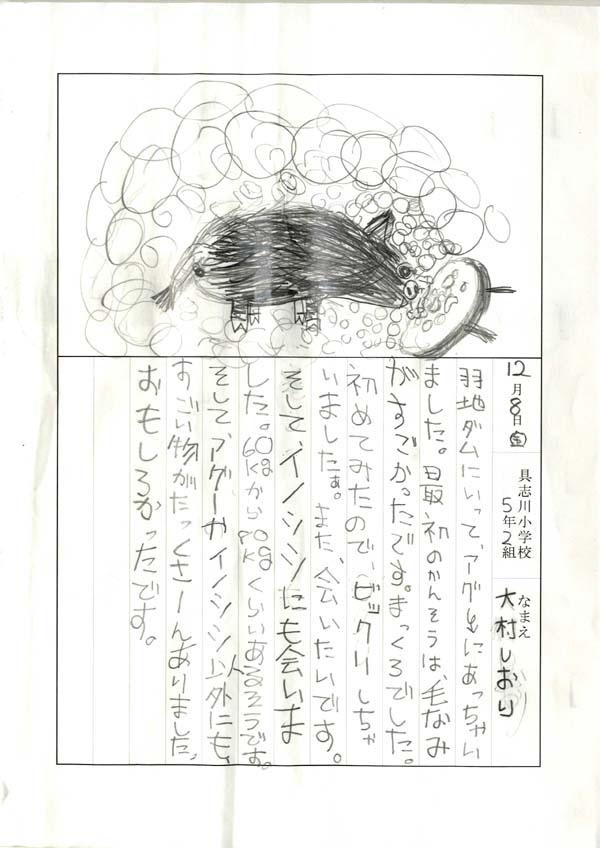 12月8日(金)
具志川小学校
5年2組
なまえ
大村しおり
羽地ダムにいって、アグーにあっちゃい
ました。最初のかんそうは、毛なみ
がすごかったです。まっくろでした。
初めてみたので、ビックリしちゃ
いましたぁ。また、会いたいです。
そして、イノシシにも会いま
した。60kgから90kgくらいあるそうです。
そして、アグーやイノシシ以外にも、
すごい物がたっくさーんありました。
おもしろかったです。